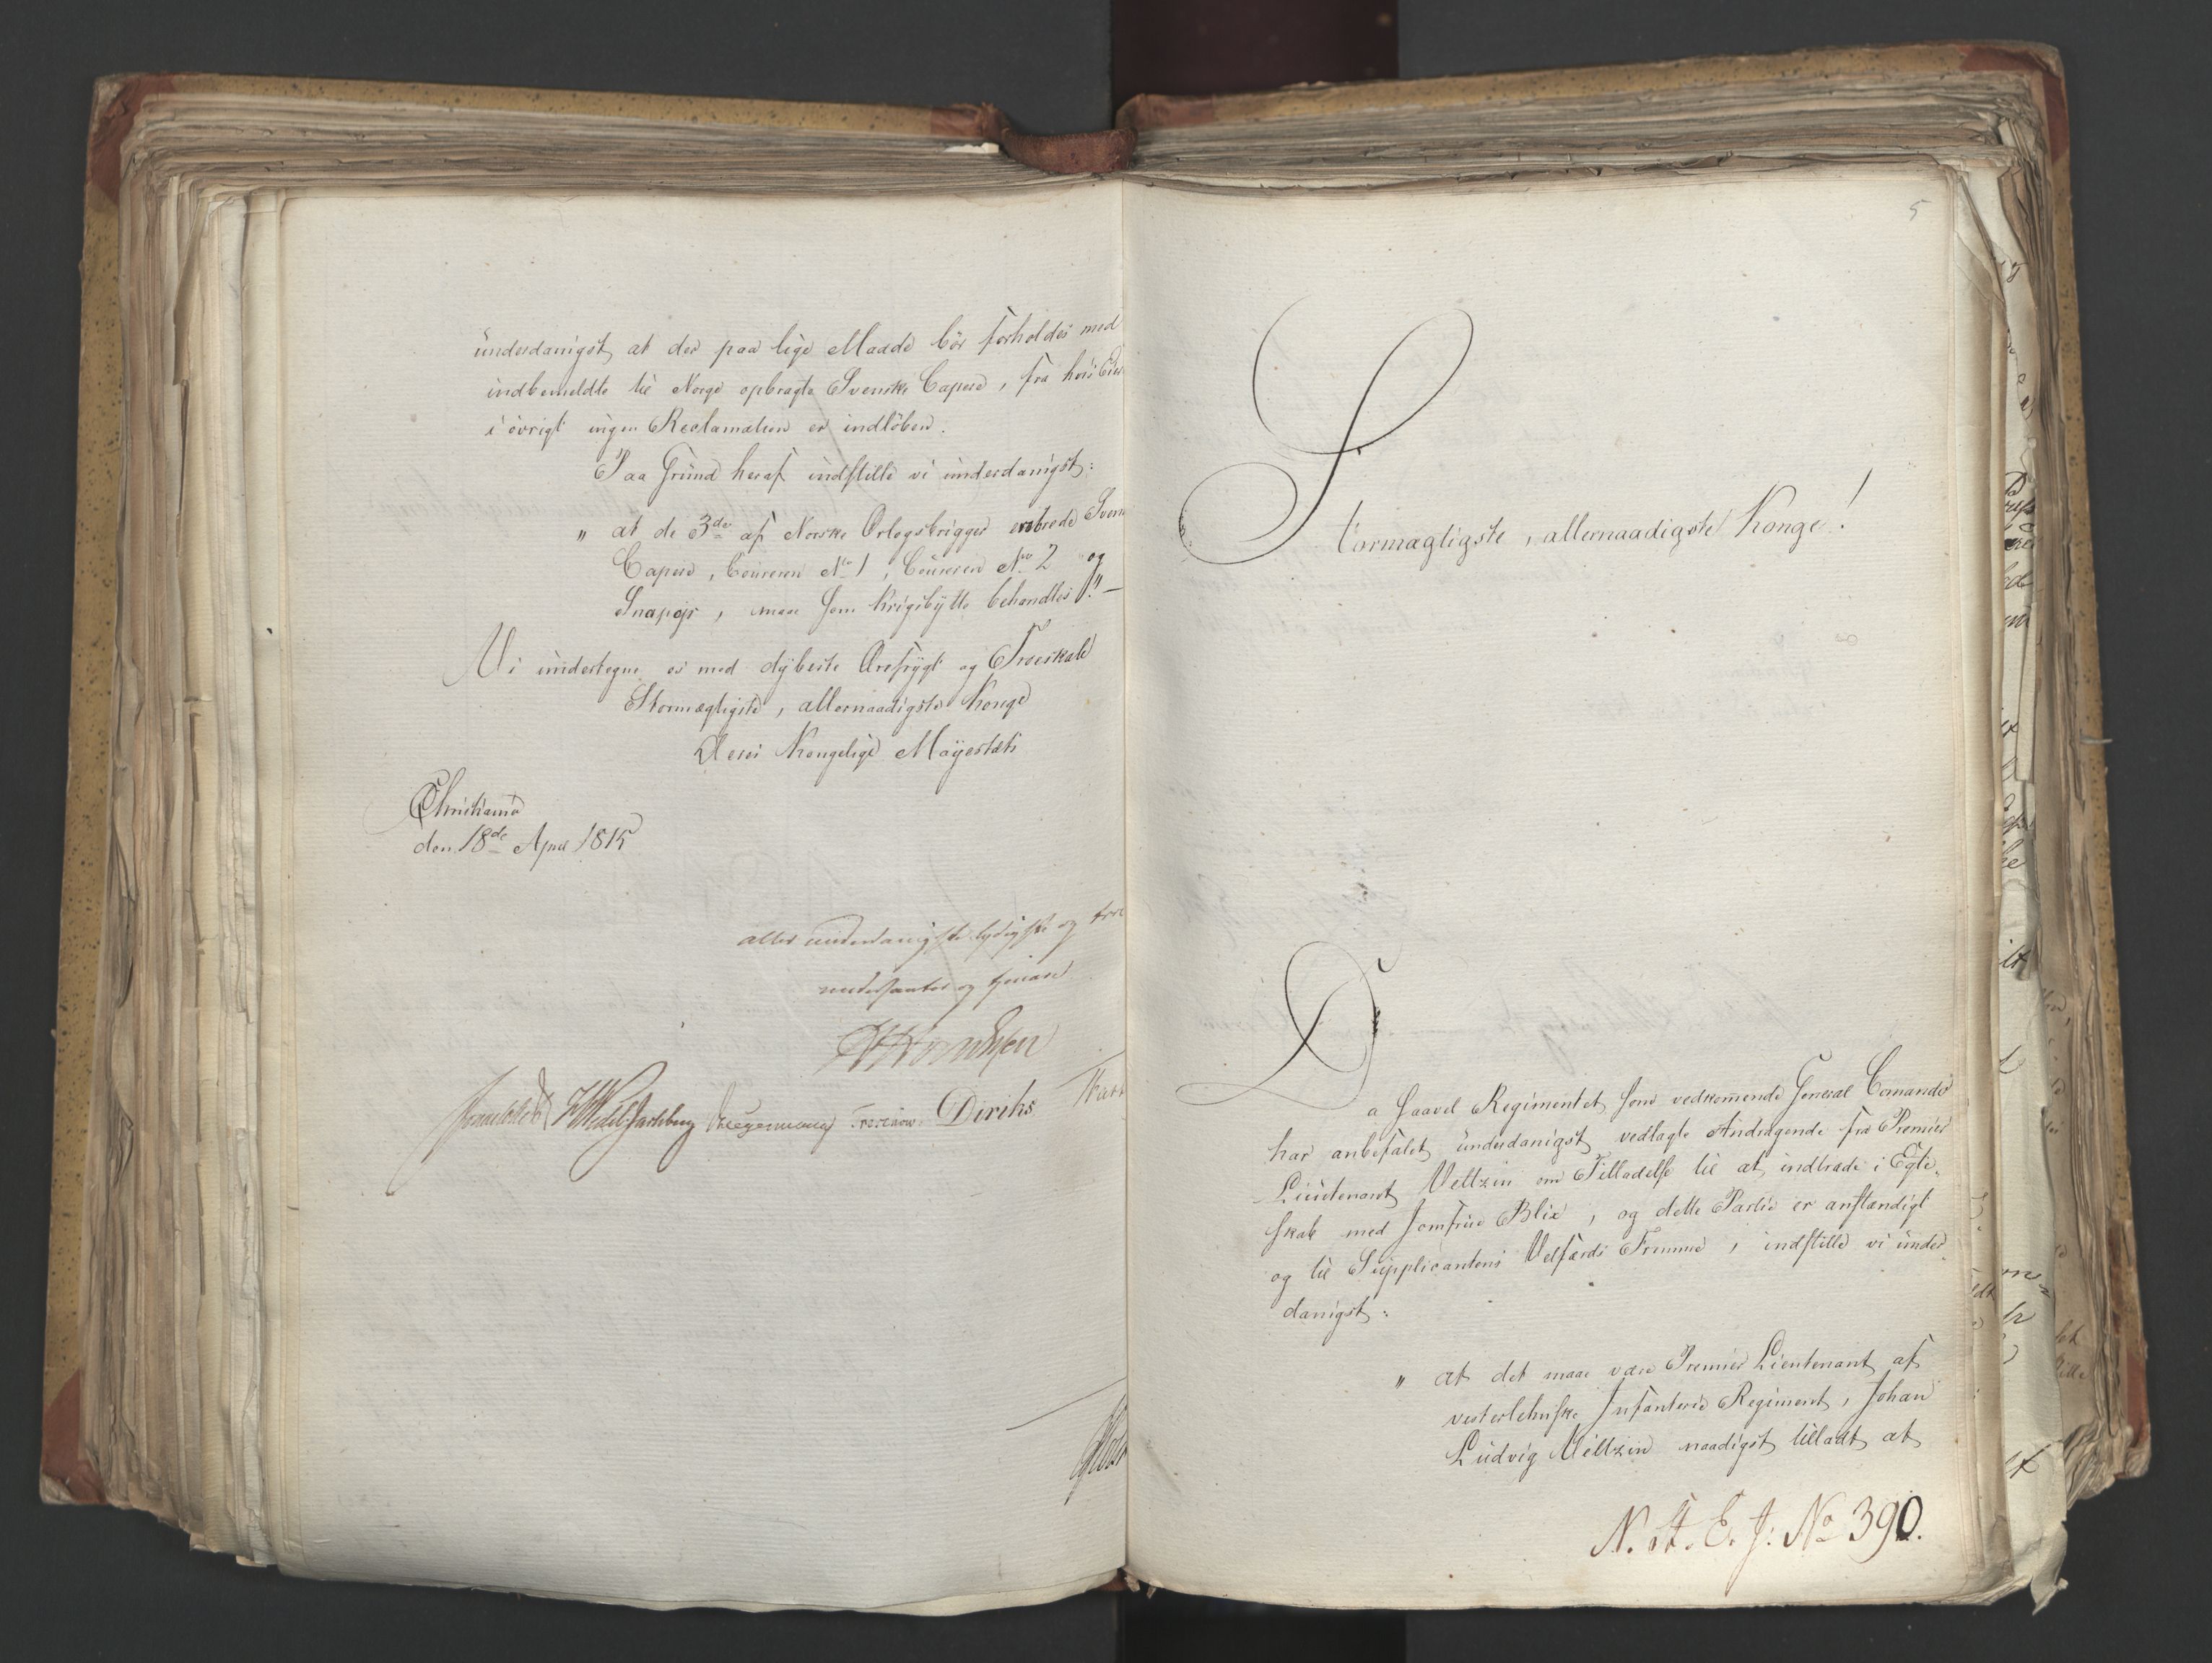 underdanigst, at der paa lige Maade bör forholdes med
indbemeldte til Norge opbragte Svenske Capere, fra hvis Eier
i övrigt ingen Reclamation er indlöben.
Paa Grund heraf indstille vi underdanigst:
" at de 3de af Norske Orlogsbrigger erobrede Svens
Capere, Coureren No 1, Coureren No 2 og
Snapop, maae som Krigsbytte behandles!" —
Vi undertegne os med dybeste Ærefrygt og Troeskab
Stormægtigste, allernaadigste Konge
Deres Kongelige Mayestæts
Christiania
den 18de April 1815
aller underdanigste lydigste og troe
undersaatter og tjenere
Sommerhielm HWedel Jarlsberg Krieg Diriks
5
Stormægtigste, allernaadigste Konge!
Da saavel Regimentet som vedkommende General Comando
har anbefalet underdanigst vedlagte Andragende fra Premier
Lieutenant Veltzin om Tilladelse til at indtræde i Egte-
skab med Jomfrue Blix, og dette Partie er anstændigt
og til Supplicantens Velfærds Fremme, indstille vi under-
danigst:
" at det maae være Premier Lieutenant af
vesterlehnske Infanterie Regiment, Johan
Ludvig Veltzin naadigst tilladt at
N. St. E. J: No 390.